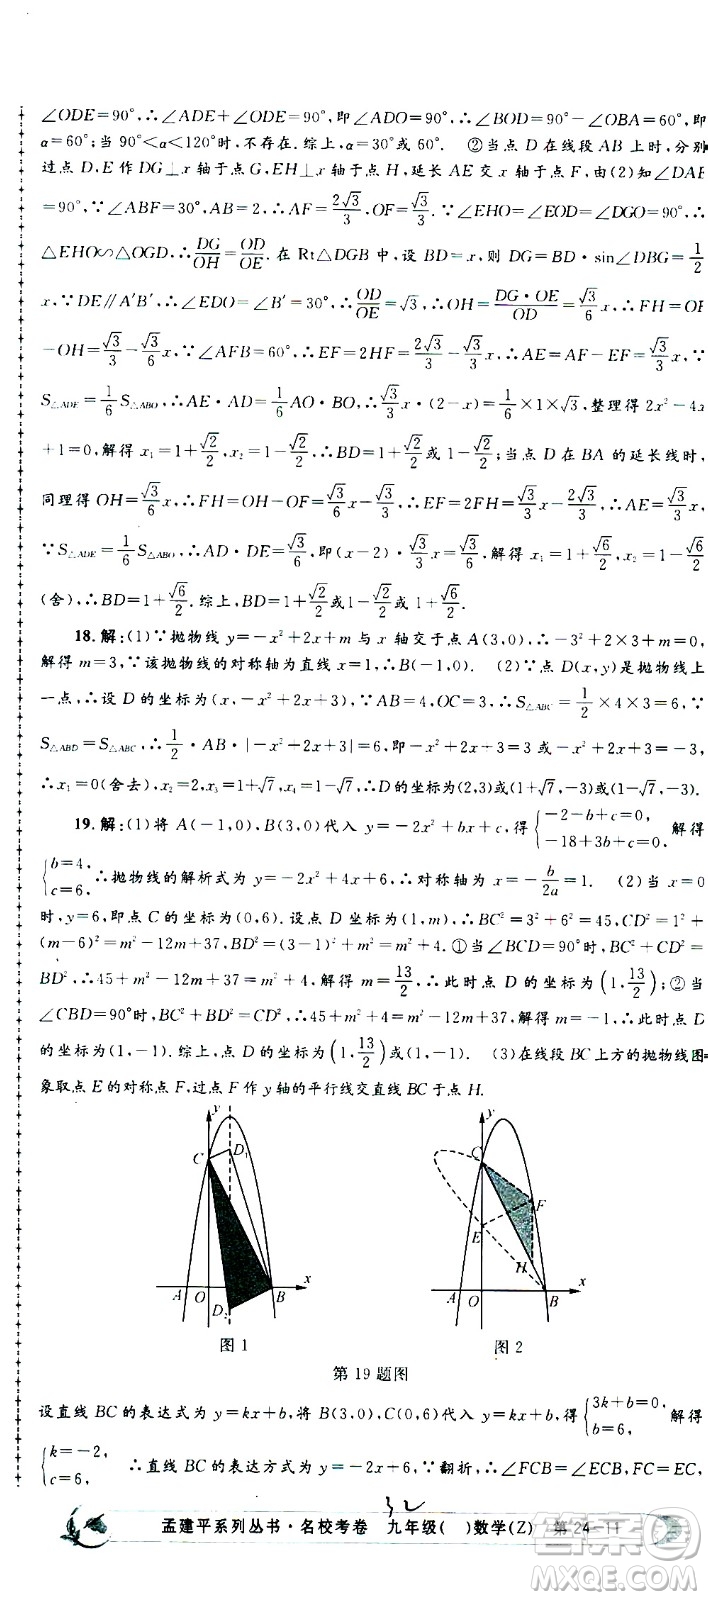 ∠ODE=90°,∴∠ADE+∠ODE=90°,即∠ADO=90°,∴∠BOD=90°-∠OBA=60°,即
α=60°;当 90°<α<120°时,不存在.综上,α=30°或 60°. ②当点 D 在线段 AB 上时,分别
过点 D,E 作 DG⊥x 轴于点 G,EH⊥x 轴于点 H,延长 AE 交 x 轴于点 F,由(2)知∠DAE
=90°,∵∠ABF=30°,AB=2,∴AF=2√3/3,OF=√3/3.∵∠EHO=∠EOD=∠DGO=90°,∴
△EHO∽△OGD,∴DG/OH=OD/OE. 在 Rt△DGB 中,设 BD=x,则 DG=BD·sin∠DBG=1/2
x,∵DE∥A′B′,∴∠EDO=∠B′=30°,∴OD/OE=√3,∴OH=DG·OE/OD=√3/6 x,∴FH=OF
-OH=√3/3-√3/6 x,∵∠AFB=60°,∴EF=2HF=2√3/3-√3/3 x,∴AE=AF-EF=√3/3 x,∵
S△ADE=1/6 S△ABO,∴AE·AD=1/6 AO·BO,∴√3/3 x·(2-x)=1/6×1×√3,整理得 2x²-4x
+1=0,解得 x₁=1+√2/2,x₂=1-√2/2,∴BD=1+√2/2或 1-√2/2;当点 D 在 BA 的延长线时,
同理得 OH=√3/6 x,∴FH=OH-OF=√3/6 x-√3/3,∴EF=2FH=√3/3 x-2√3/3,∴AE=√3/3 x,
∵S△ADE=1/6 S△ABO,∴AD·DE=√3/6,即(x-2)·√3/3 x=√3/6,解得 x₁=1+√6/2,x₂=1-√6/2
(舍),∴BD=1+√6/2.综上,BD=1+√2/2或 1-√2/2或 1+√6/2.
18.解:(1)∵抛物线 y=-x²+2x+m 与 x 轴交于点 A(3,0),∴-3²+2×3+m=0,
解得 m=3,∵该抛物线的对称轴为直线 x=1,∴B(-1,0). (2)∵点 D(x,y)是抛物线上
一点,∴设 D 的坐标为(x,-x²+2x+3),∵AB=4,OC=3,∴S△ABC=1/2×4×3=6,∵
S△ABD=S△ABC,∴1/2·AB·|-x²+2x+3|=6,即-x²+2x+3=3 或-x²+2x+3=-3,
∴x₁=0(舍去),x₂=2,x₃=1+√7,x₄=1-√7,∴D 的坐标为(2,3)或(1+√7,-3)或(1-√7,-3).
19.解:(1)将 A(-1,0),B(3,0)代入 y=-2x²+bx+c,得{-2-b+c=0, -18+3b+c=0. 解得
{b=4, c=6. ∴抛物线的解析式为 y=-2x²+4x+6,∴对称轴为 x=-b/2a=1. (2)当 x=0
时,y=6,即点 C 的坐标为(0,6).设点 D 坐标为(1,m),∴BC²=3²+6²=45,CD²=1²+
(m-6)²=m²-12m+37,BD²=(3-1)²+m²=m²+4.①当∠BCD=90°时,BC²+CD²=
BD²,∴45+m²-12m+37=m²+4,解得 m=13/2,∴此时点 D 的坐标为(1,13/2);②当
∠CBD=90°时,BC²+BD²=CD²,∴45+m²+4=m²-12m+37,解得 m=-1,∴此时点 D
的坐标为(1,-1).综上,点 D 的坐标为(1,13/2)或(1,-1). (3)在线段 BC 上方的抛物线图
象取点 E 的对称点 F,过点 F 作 y 轴的平行线交直线 BC 于点 H.
y C D₁ A O D₂ B x
图 1
y C F E H A O B x
图 2
第 19 题图
设直线 BC 的表达式为 y=kx+b,将 B(3,0),C(0,6)代入 y=kx+b,得{3k+b=0, b=6, 解得
{k=-2, c=6. ∴直线 BC 的表达方式为 y=-2x+6,∵翻折,∴∠FCB=∠ECB,FC=EC,
32
孟建平系列丛书·名校考卷 九年级( )数学(Z) 第 24-11
作业帮
MXQE.COM